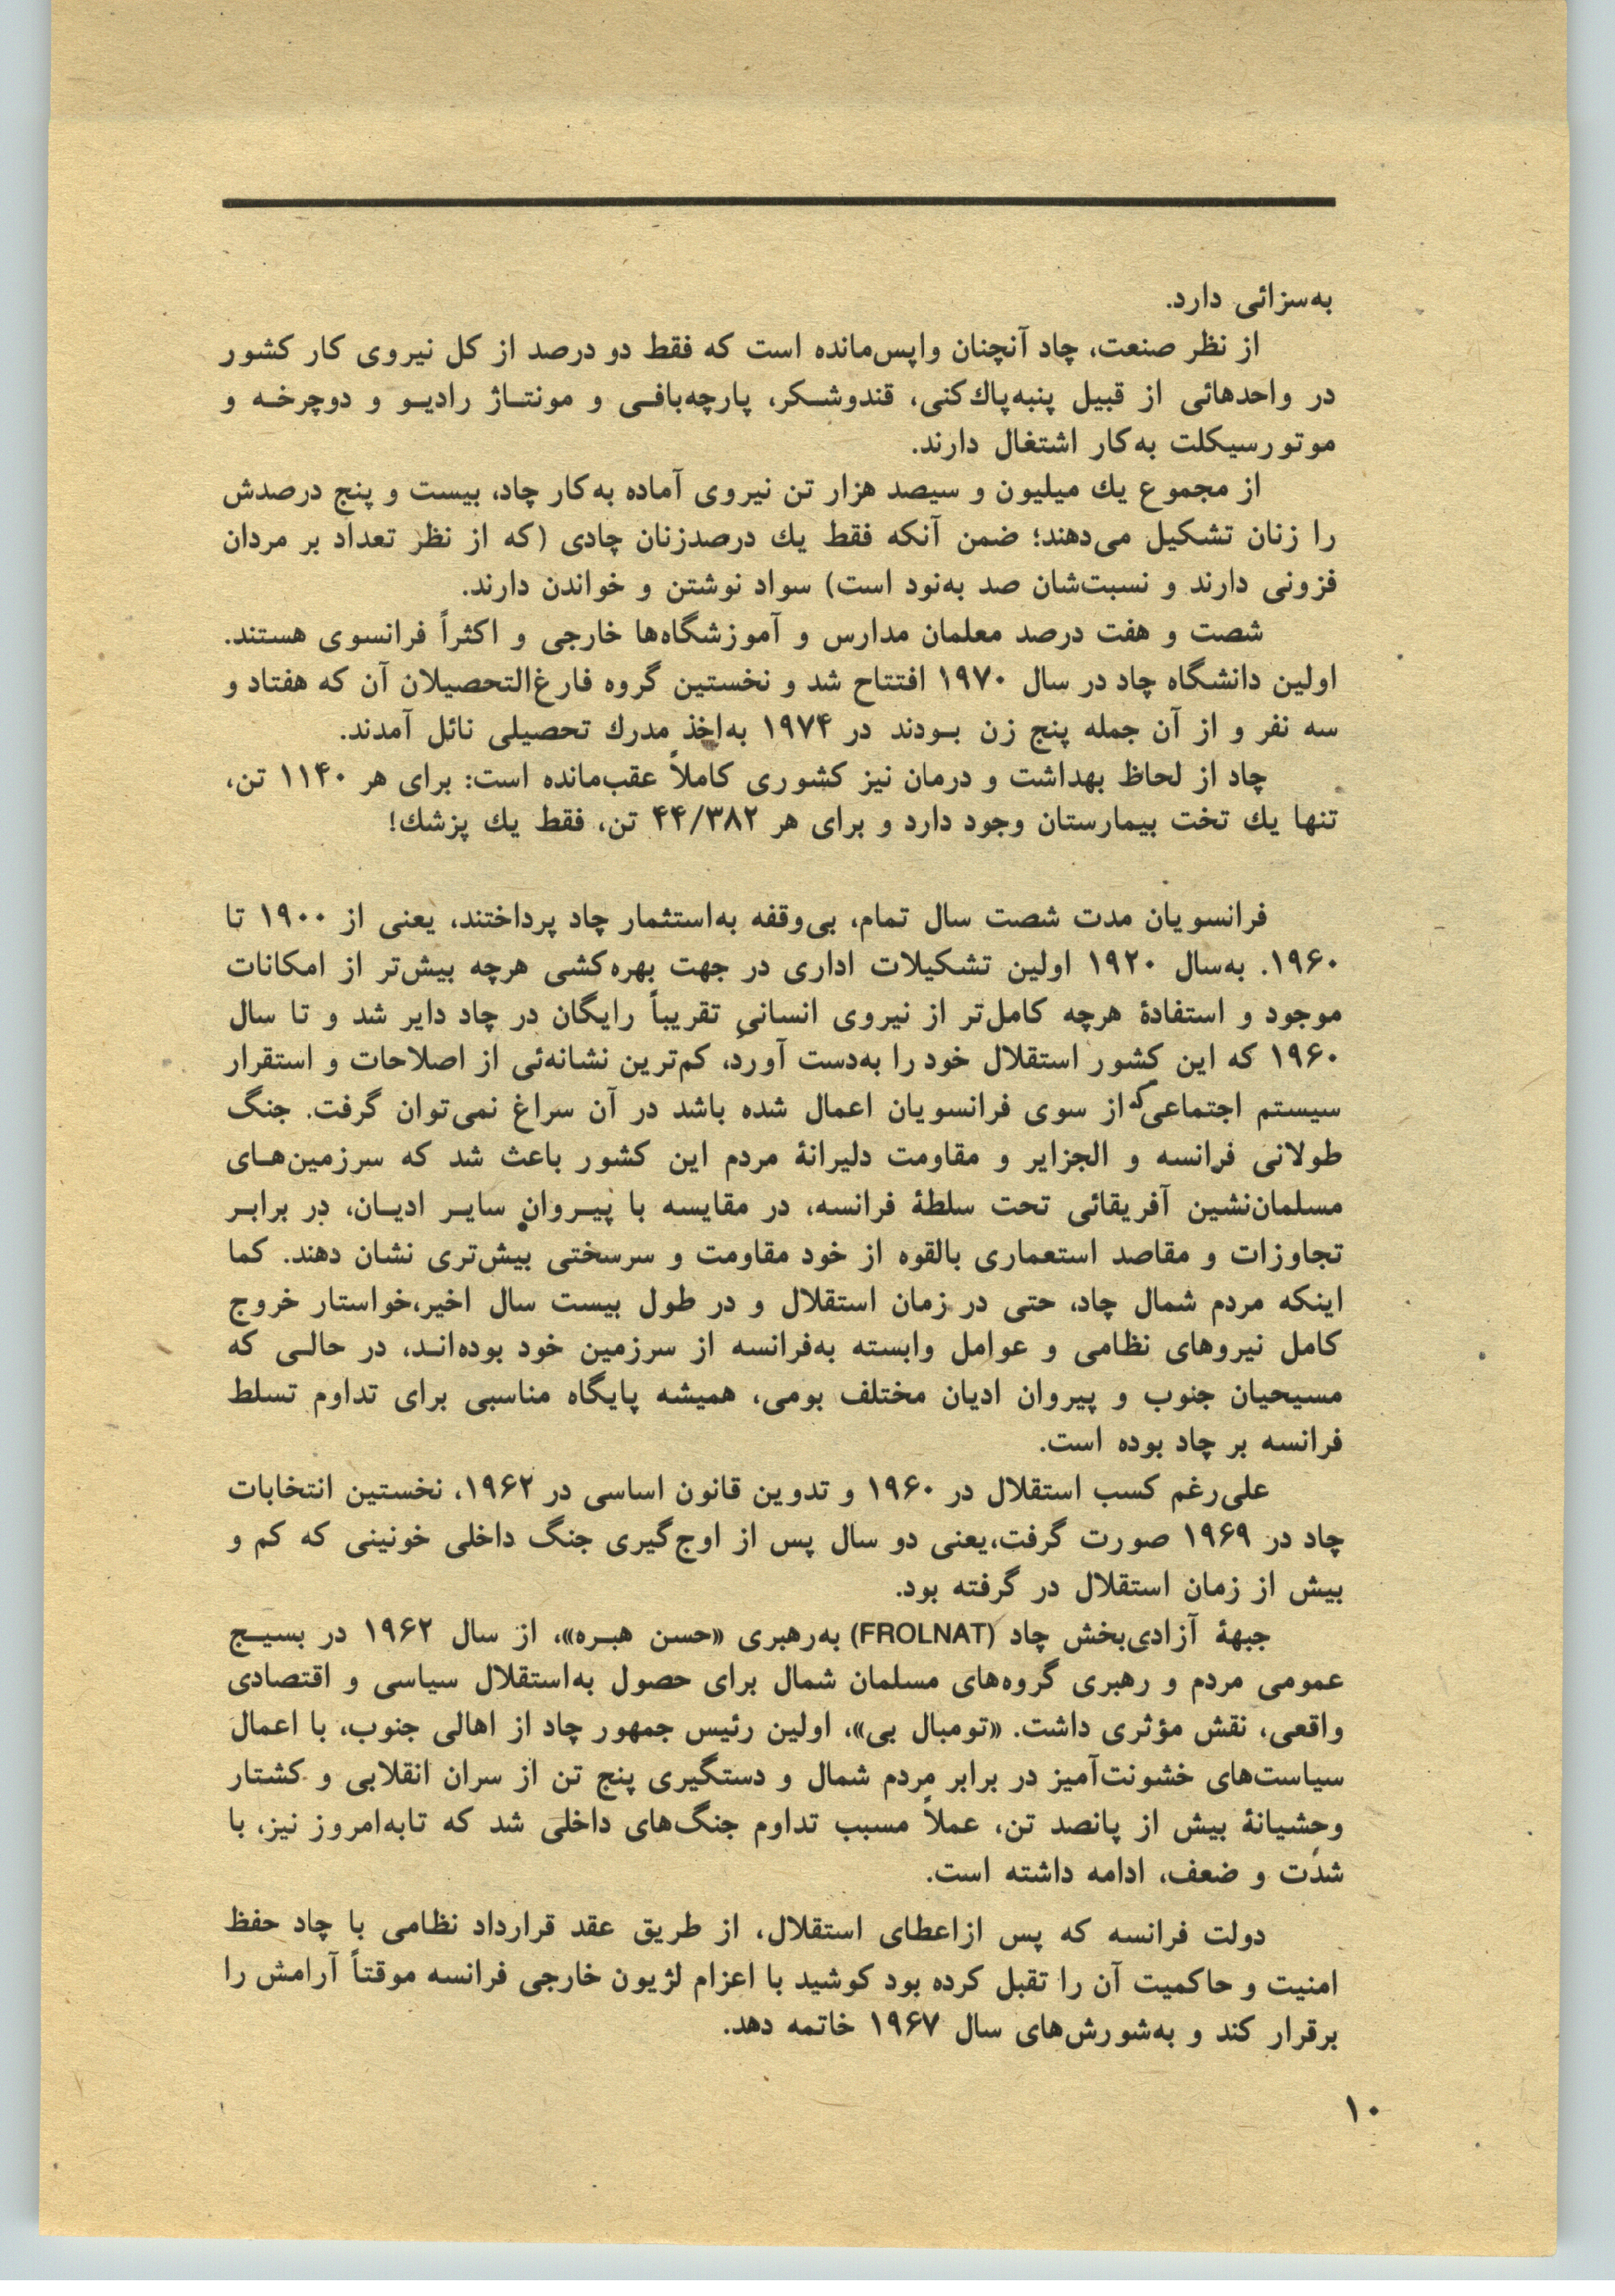 به‌سزائی دارد.
از نظر صنعت، چاد آنچنان واپس‌مانده است که فقط دو درصد از کل نیروی کار کشور
در واحدهائی از قبیل پنبه‌پاك‌کنی، قندوشکر، پارچه‌بافی و مونتاژ رادیو و دوچرخه و
موتورسیکلت به‌کار اشتغال دارند.
از مجموع یك میلیون و سیصد هزار تن نیروی آماده به‌کار چاد، بیست و پنج درصدش
را زنان تشکیل می‌دهند؛ ضمن آنکه فقط یك درصدزنان چادی (که از نظر تعداد بر مردان
فزونی دارند و نسبت‌شان صد به‌نود است) سواد نوشتن و خواندن دارند.
شصت و هفت درصد معلمان مدارس و آموزشگاه‌ها خارجی و اکثراً فرانسوی هستند.
اولین دانشگاه چاد در سال ۱۹۷۰ افتتاح شد و نخستین گروه فارغ‌التحصیلان آن که هفتاد و
سه نفر و از آن جمله پنج زن بودند در ۱۹۷۴ به‌اخذ مدرك تحصیلی نائل آمدند.
چاد از لحاظ بهداشت و درمان نیز کشوری کاملاً عقب‌مانده است: برای هر ۱۱۴۰ تن،
تنها یك تخت بیمارستان وجود دارد و برای هر ۴۴/۳۸۲ تن، فقط یك پزشك!
فرانسویان مدت شصت سال تمام، بی‌وقفه به‌استثمار چاد پرداختند، یعنی از ۱۹۰۰ تا
۱۹۶۰. به‌سال ۱۹۲۰ اولین تشکیلات اداری در جهت بهره‌کشی هرچه بیش‌تر از امکانات
موجود و استفادهٔ هرچه کامل‌تر از نیروی انسانیِ تقریباً رایگان در چاد دایر شد و تا سال
۱۹۶۰ که این کشور استقلال خود را به‌دست آورد، کم‌ترین نشانه‌ئی از اصلاحات و استقرار
سیستم اجتماعی که از سوی فرانسویان اعمال شده باشد در آن سراغ نمی‌توان گرفت. جنگ
طولانی فرانسه و الجزایر و مقاومت دلیرانهٔ مردم این کشور باعث شد که سرزمین‌های
مسلمان‌نشین آفریقائی تحت سلطهٔ فرانسه، در مقایسه با پیروان سایر ادیان، در برابر
تجاوزات و مقاصد استعماری بالقوه از خود مقاومت و سرسختی بیش‌تری نشان دهند. کما
اینکه مردم شمال چاد، حتی در زمان استقلال و در طول بیست سال اخیر،خواستار خروج
کامل نیروهای نظامی و عوامل وابسته به‌فرانسه از سرزمین خود بوده‌اند، در حالی که
مسیحیان جنوب و پیروان ادیان مختلف بومی، همیشه پایگاه مناسبی برای تداوم تسلط
فرانسه بر چاد بوده است.
علی‌رغم کسب استقلال در ۱۹۶۰ و تدوین قانون اساسی در ۱۹۶۲، نخستین انتخابات
چاد در ۱۹۶۹ صورت گرفت،یعنی دو سال پس از اوج‌گیری جنگ داخلی خونینی که کم و
بیش از زمان استقلال در گرفته بود.
جبههٔ آزادی‌بخش چاد (FROLNAT) به‌رهبری «حسن هبره»، از سال ۱۹۶۲ در بسیج
عمومی مردم و رهبری گروه‌های مسلمان شمال برای حصول به‌استقلال سیاسی و اقتصادی
واقعی، نقش مؤثری داشت. «تومبال بی»، اولین رئیس جمهور چاد از اهالی جنوب، با اعمال
سیاست‌های خشونت‌آمیز در برابر مردم شمال و دستگیری پنج تن از سران انقلابی و کشتار
وحشیانهٔ بیش از پانصد تن، عملاً مسبب تداوم جنگ‌های داخلی شد که تابه‌امروز نیز، با
شدت و ضعف، ادامه داشته است.
دولت فرانسه که پس ازاعطای استقلال، از طریق عقد قرارداد نظامی با چاد حفظ
امنیت و حاکمیت آن را تقبل کرده بود کوشید با اعزام لژیون خارجی فرانسه موقتاً آرامش را
برقرار کند و به‌شورش‌های سال ۱۹۶۷ خاتمه دهد.
۱۰